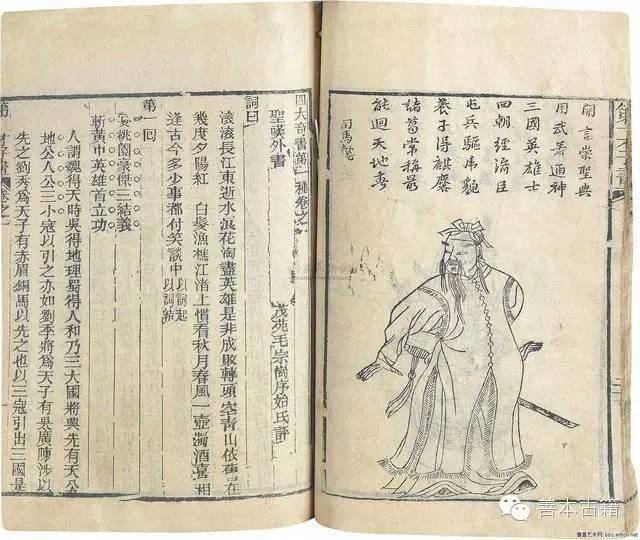 第一才子書
開言崇聖典
用武若通神
三國英雄士
四朝經濟臣
屯兵驅虎豹
養子得麒麟
諸葛常稱羨
能迴天地春
司馬懿
四大奇書第一種卷之一
聖嘆外書
茂苑毛宗崗序始氏評
詞曰
滾滾長江東逝水浪花淘盡英雄是非成敗轉頭空青山依舊在
幾度夕陽紅 白髮漁樵江渚上慣看秋月春風一壺濁酒喜相
逢古今多少事都付笑談中 以詞起以詞結
第一回
宴桃園豪傑三結義
斬黃巾英雄首立功
人謂魏得天時吳得地理蜀得人和乃三大國將興先有天公
地公人公三小寇以引之亦如劉季將為天子有吳廣陳涉以
先之劉秀為天子有赤眉銅馬以先之也以三寇引出三國是
第 才子書 卷之一
善本古籍
雅昌艺术网 bbs.artron.net